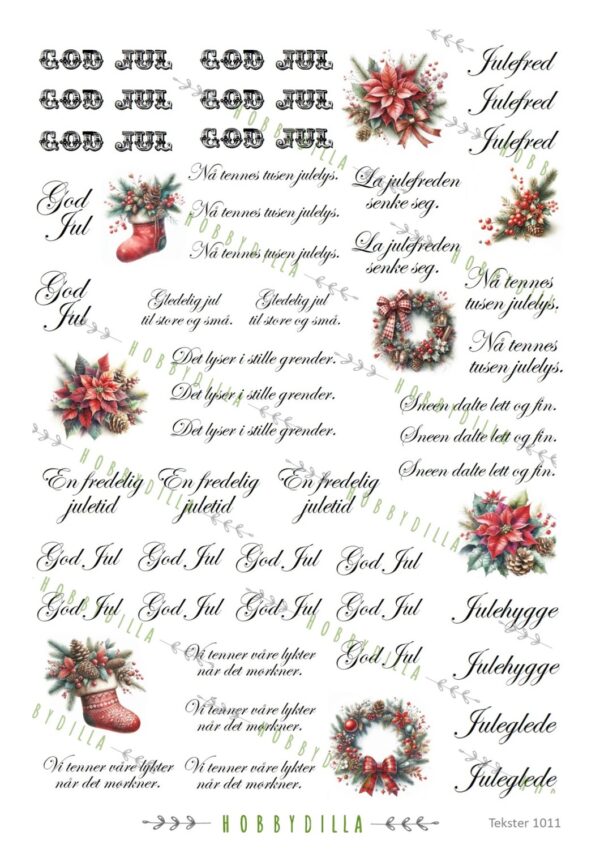 GOD JUL
GOD JUL
GOD JUL
GOD JUL
GOD JUL
GOD JUL
Julefred
Julefred
Julefred
God
Jul
Nå tennes tusen julelys.
Nå tennes tusen julelys.
Nå tennes tusen julelys.
La julefreden
senke seg.
La julefreden
senke seg.
God
Jul
Gledelig jul
til store og små.
Gledelig jul
til store og små.
Nå tennes
tusen julelys.
Nå tennes
tusen julelys.
Det lyser i stille grender.
Det lyser i stille grender.
Det lyser i stille grender.
Sneen dalte lett og fin.
Sneen dalte lett og fin.
Sneen dalte lett og fin.
En fredelig
juletid
En fredelig
juletid
En fredelig
juletid
God Jul
God Jul
God Jul
God Jul
God Jul
God Jul
God Jul
God Jul
Julehygge
Vi tenner våre lykter
når det mørkner.
God Jul
Julehygge
Vi tenner våre lykter
når det mørkner.
Juleglede
Vi tenner våre lykter
når det mørkner.
Vi tenner våre lykter
når det mørkner.
Juleglede
HOBBYDILLA
Tekster 1011
HOBBYDILLA
HOBBYDILLA
HOBBYDILLA
HOBBYDILLA
HOBBYDILLA
HOBBYDILLA
HOBBYDILLA
HOBBYDILLA
HOBBYDILLA
BYDILLA
HOBB